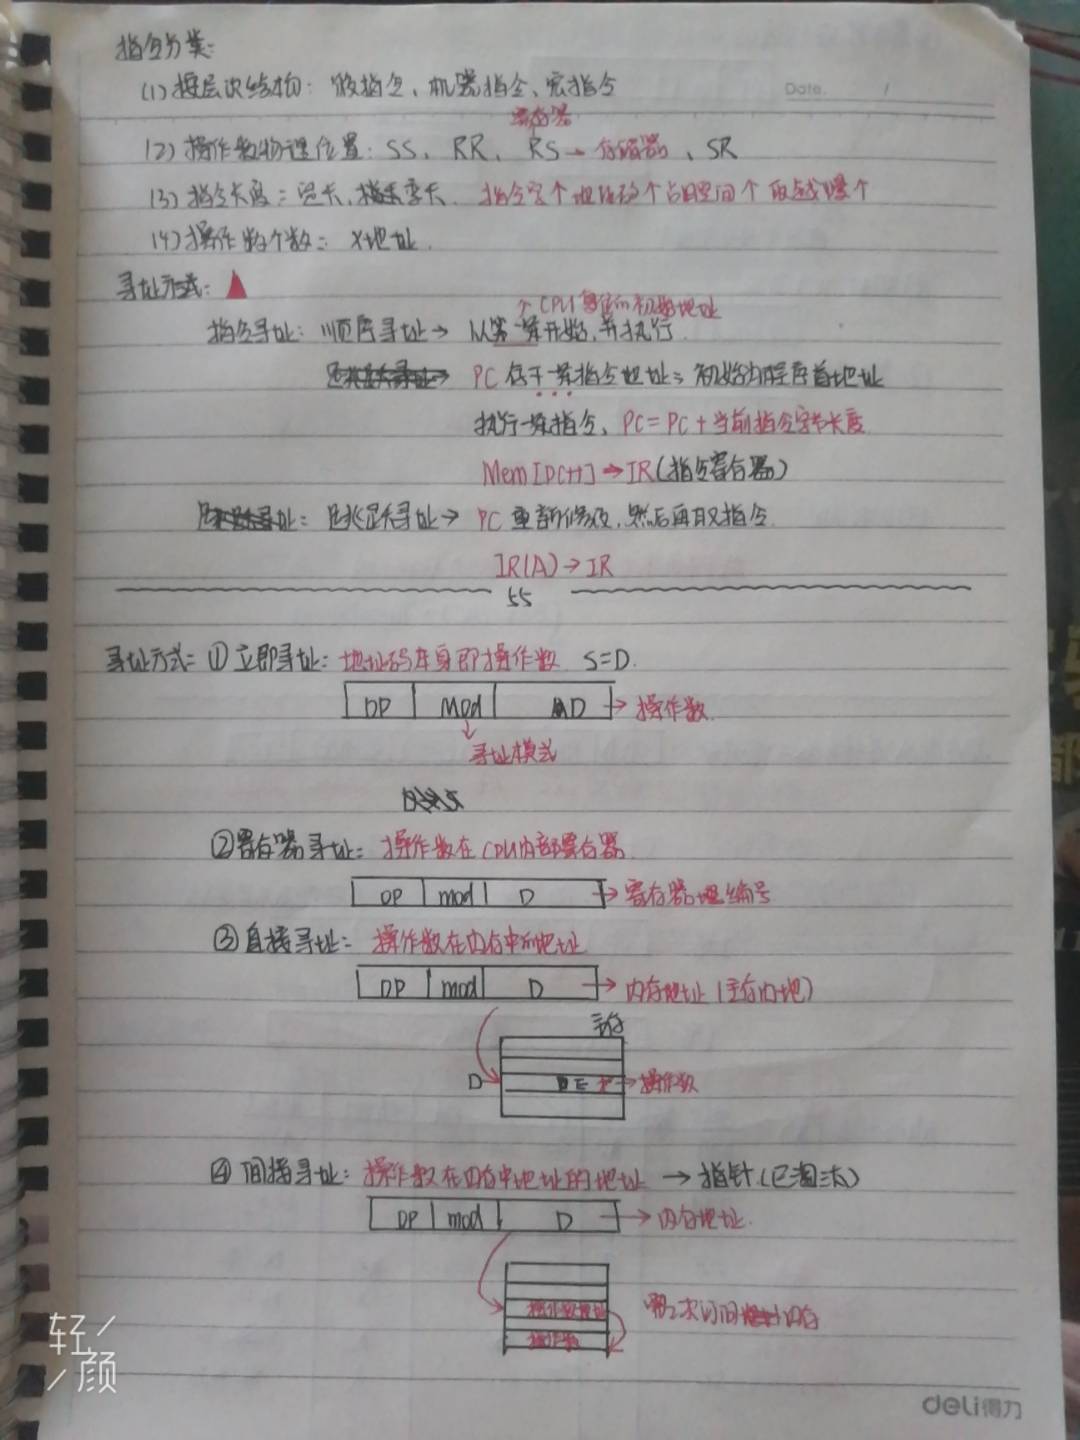 指令分类:
(1)按层次结构: 微指令、机器指令、宏指令
Date.
寄存器
(2)操作数物理位置: SS、RR、RS→存储器、SR
(3)指令长度: 定长、变长. 指令字个 地址码个 占用空间个 取越慢个
(4)操作数个数: X地址.
寻址方式:
↑CPU复位的初始地址
指令寻址: 顺序寻址→ 从第一条开始,并执行.
PC 存下一条指令地址; 初始为程序首地址
执行一条指令, PC=PC+当前指令字节长度
Mem[PC++]→IR(指令寄存器)
跳跃寻址→ PC重新修改,然后再取指令.
IR(A)→IR
55
寻址方式: ①立即寻址: 地址码本身即操作数 S=D.
OP Mod D →操作数
↓寻址模式
②寄存器寻址: 操作数在CPU内部寄存器
OP mod D →寄存器编号
③直接寻址: 操作数在内存中的地址
OP mod D →内存地址(主存内地)
主存
D →操作数
④间接寻址: 操作数在内存中地址的地址 →指针(已淘汰)
OP mod D →内存地址.
操作数地址
需2次访问内存
操作数
轻颜
deli得力